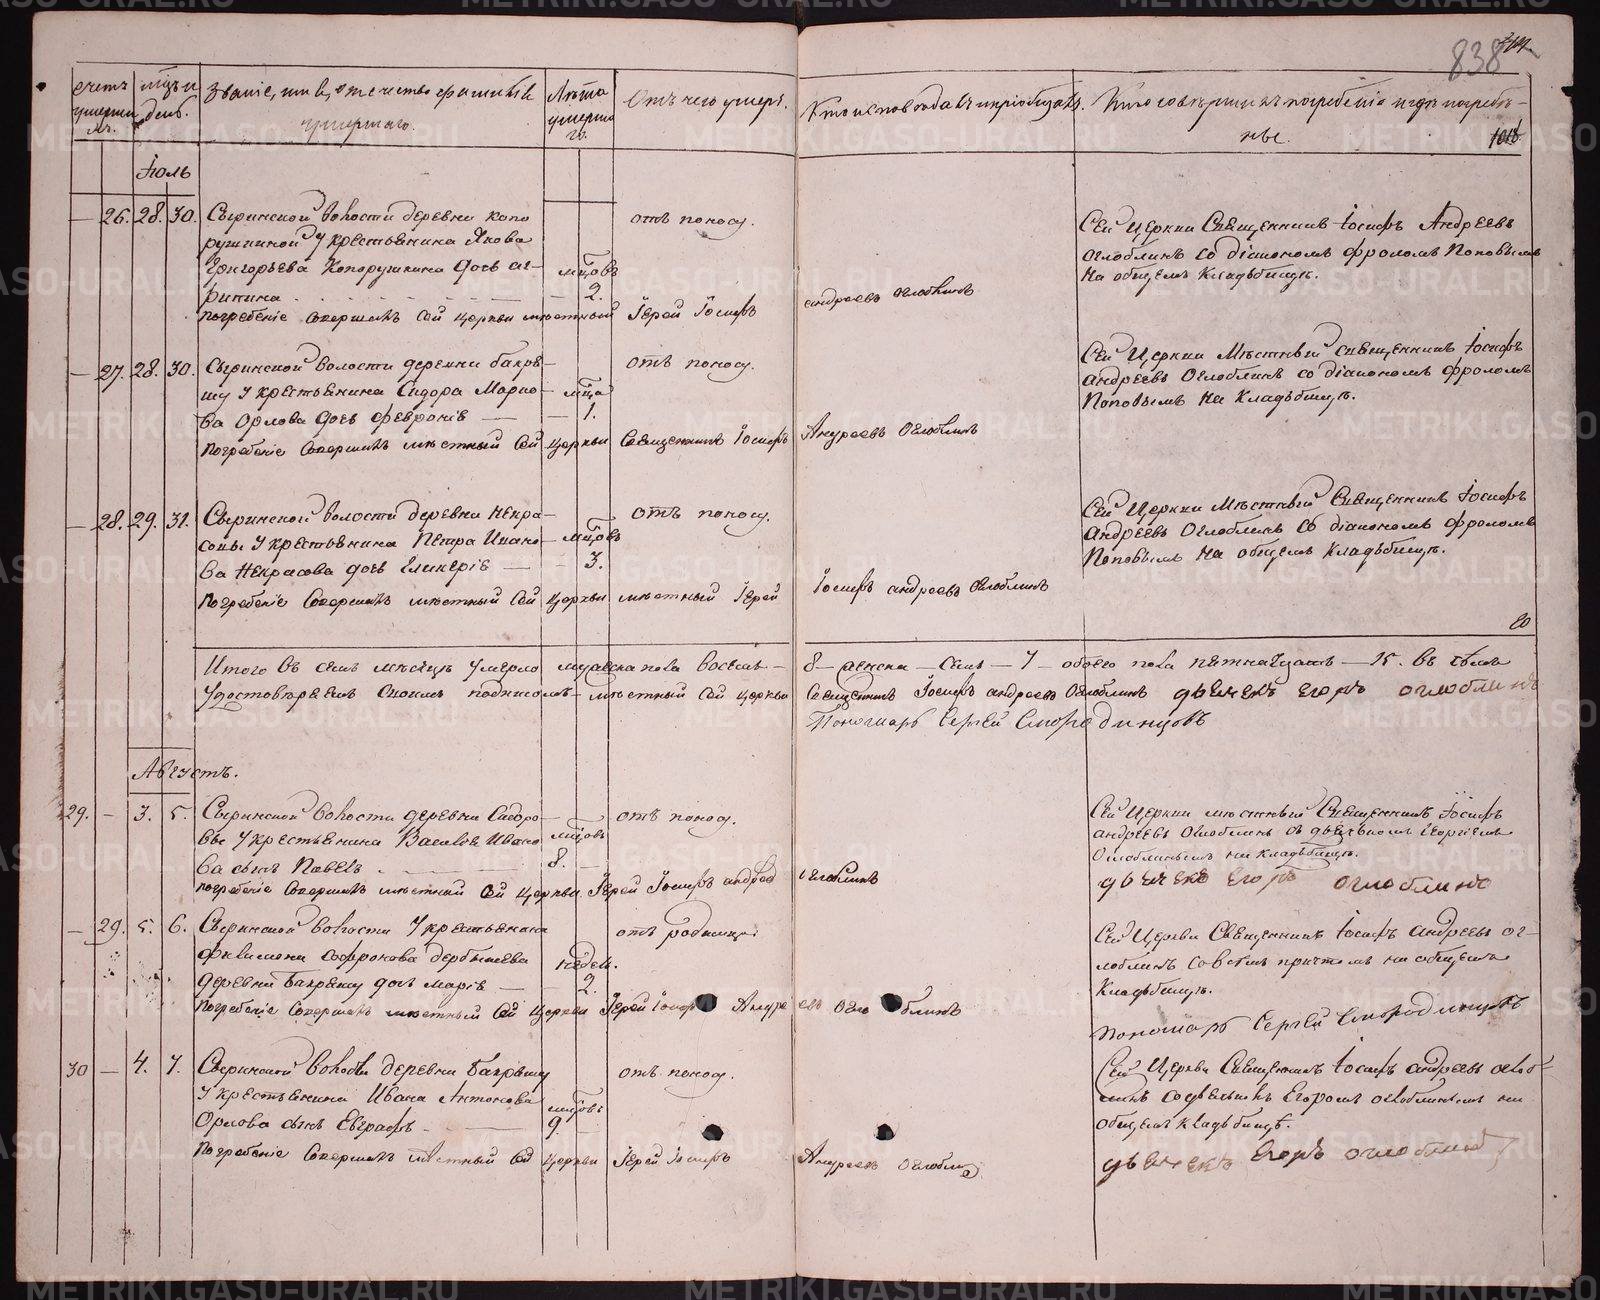 838
счетъ умершихъ.
мѣсяцъ и день.
Званіе, имя, отечество и фамилія умершаго.
Лѣта умершаго.
Отъ чего умеръ.
Кто исповѣдалъ и пріобщалъ.
Кто совершилъ погребеніе и гдѣ погребены.
Іюль
— 26. 28. 30. Сыринской волости деревни Копо
отъ поносу.
рушкиной у крестьянина Якова
Григорьева Копорушкина дочь Аг-
мцовъ
рипина
2.
погребеніе совершалъ сей церкви мѣстный Іерей Іосифъ Андреевъ Оглоблинъ
Сей церкви Священникъ Іосифъ Андреевъ
Оглоблинъ со діакономъ Фроломъ Поповымъ
на общемъ кладбищѣ.
— 27. 28. 30. Сыринской волости деревни Бакря-
отъ поносу.
шу у крестьянина Сидора Марко-
мца
ва Орлова дочь Февронія — 1.
погребеніе совершалъ мѣстный сей церкви Священникъ Іосифъ Андреевъ Оглоблинъ
Сей церкви мѣстный священникъ Іосифъ
Андреевъ Оглоблинъ со діакономъ Фроломъ
Поповымъ на кладбищѣ.
— 28. 29. 31. Сыринской волости деревни Некра-
отъ поносу.
совы у крестьянина Петра Ивано-
мцовъ
ва Некрасова дочь Гликерія — 3.
погребеніе совершалъ мѣстный сей церкви мѣстный Іерей Іосифъ Андреевъ Оглоблинъ
Сей церкви мѣстный Священникъ Іосифъ
Андреевъ Оглоблинъ со діакономъ Фроломъ
Поповымъ на общемъ кладбищѣ.
Итого въ семъ мѣсяцѣ умерло мужеска пола восемь — 8 — женска — семь — 7 — обоего пола пятнадцать — 15. въ чемъ
удостовѣряемъ своимъ подписомъ — мѣстный сей церкви Священникъ Іосифъ Андреевъ Оглоблинъ дьячекъ Егоръ Оглоблинъ
Пономарь Сергей Смородинцовъ
Августъ.
29. — 3. 5. Сыринской волости деревни Сидоро-
отъ поносу.
вы у крестьянина Василья Ивано
мцовъ
ва сынъ Павелъ
8. —
погребеніе совершалъ мѣстный сей церкви Іерей Іосифъ Андреевъ Оглоблинъ
Сей церкви мѣстный Священникъ Іосифъ
Андреевъ Оглоблинъ съ дьячкомъ Георгіемъ
Оглоблинымъ на кладбищѣ.
дьячекъ Егоръ Оглоблинъ
— 29. 5. 6. Сыринской волости у крестьянина
отъ родимца.
Филимона Софронова Дербышева
недель.
деревни Бакряшу дочь Марія — 2.
погребеніе совершалъ мѣстный сей церкви Іерей Іосифъ Андреевъ Оглоблинъ
Сей церкви Священникъ Іосифъ Андреевъ Ог-
лоблинъ совсѣмъ причтомъ на общемъ
кладбищѣ.
Пономарь Сергей Смородинцовъ
30 — 4. 7. Сыринской волости деревни Бакряшу
отъ поносу.
у крестьянина Ивана Антонова
мцовъ
Орлова сынъ Евграфъ
9.
погребеніе совершалъ мѣстный сей церкви Іерей Іосифъ Андреевъ Оглоблинъ
Сей церкви Священникъ Іосифъ Андреевъ Оглоб-
линъ съ дьячкомъ Егоромъ Оглоблинымъ на
общемъ кладбищѣ.
дьячекъ Егоръ Оглоблинъ
METRIKI.GASO-URAL.RU